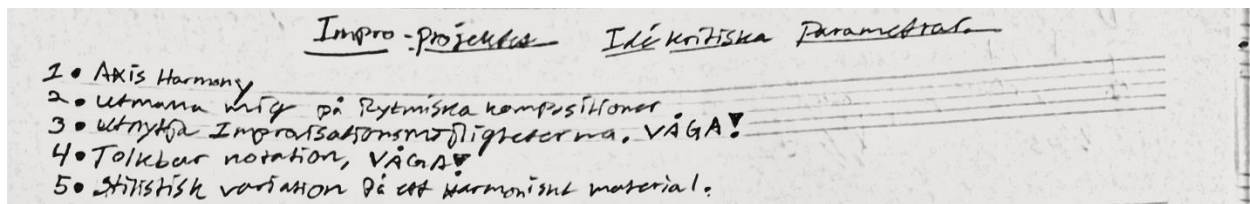 Impro-projektet Idékritiska Parametrar.
1. Axis Harmony
2. Utmana mig på Rytmiska kompositioner
3. Utnytja Improvisationsmöjligheterna. VÅGA!
4. Tolkbar notation, VÅGA!
5. Stilistisk variation på ett Harmoniskt material.